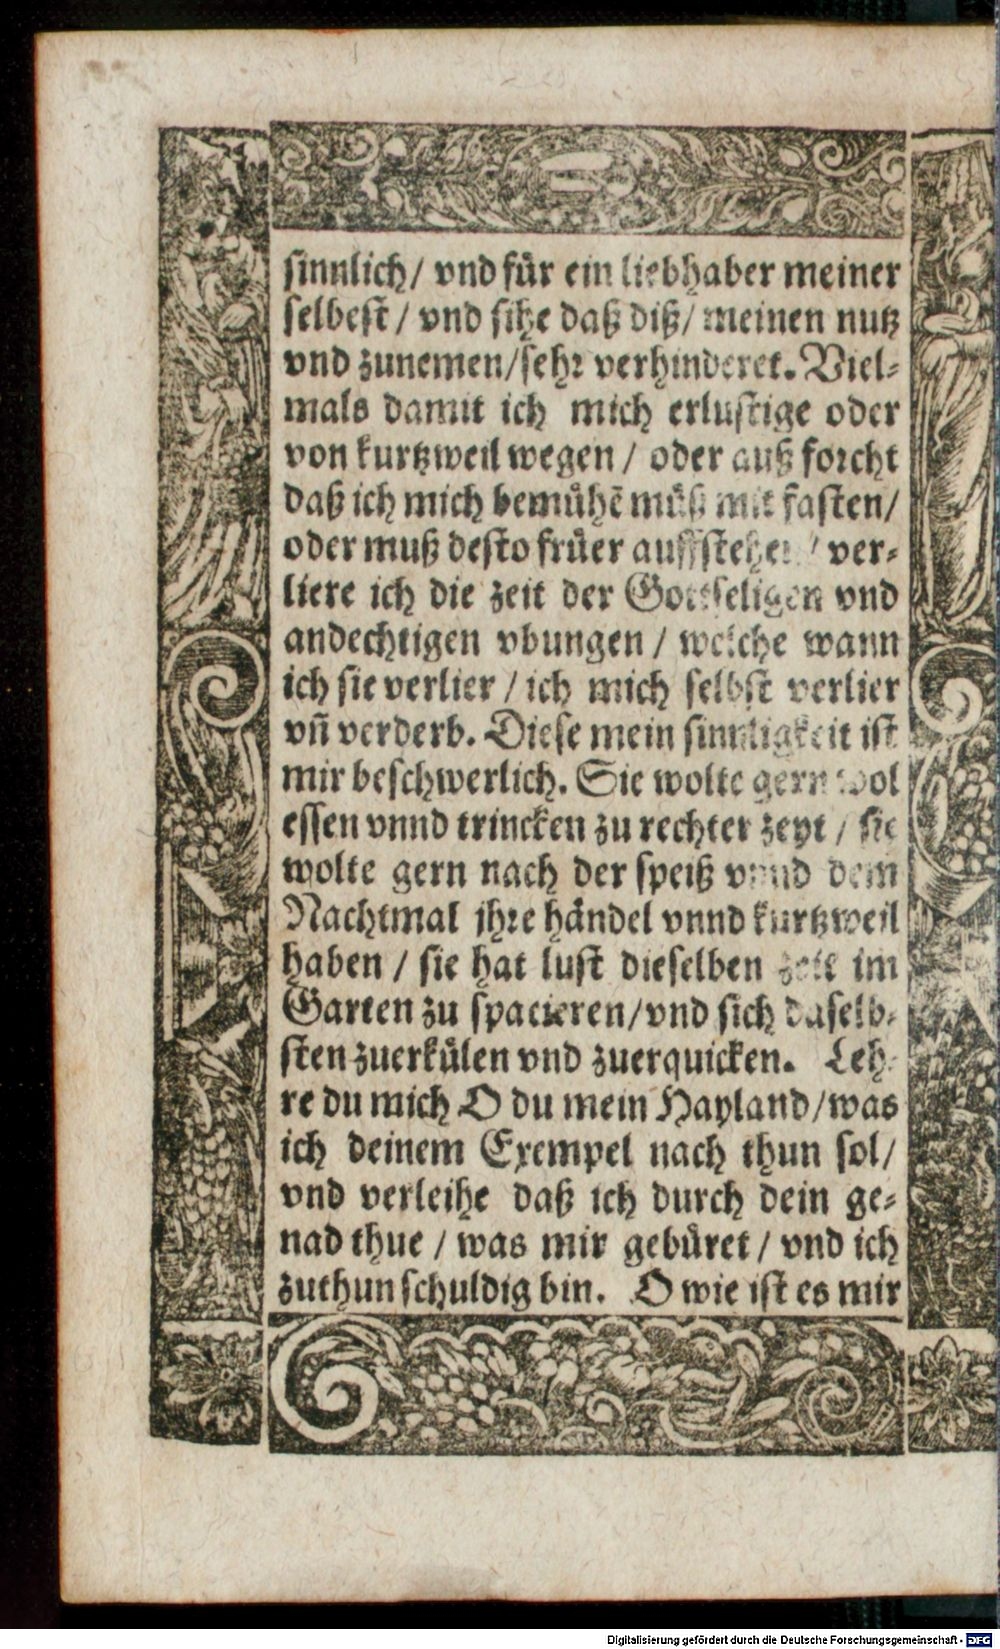 sinnlich/ vnd für ein liebhaber meiner
selbest / vnd sihe daß diß/ meinen nutz
vnd zunemen/sehr verhinderet. Viel-
mals damit ich mich erlustige oder
von kurtzweil wegen / oder auß forcht
daß ich mich bemühē müß mit fasten/
oder muß desto früer auffstehen / ver-
liere ich die zeit der Gottseligen vnd
andechtigen vbungen / welche wann
ich sie verlier / ich mich selbst verlier
vñ verderb. Diese mein sinnligkeit ist
mir beschwerlich. Sie wolte gern wol
essen vnnd trincken zu rechter zeyt / sie
wolte gern nach der speiß vnnd dem
Nachtmal jhre händel vnnd kurtzweil
haben / sie hat lust dieselben zeit im
Garten zu spacieren/vnd sich daselb-
sten zuerkülen vnd zuerquicken. Leh-
re du mich O du mein Hayland/was
ich deinem Exempel nach thun sol/
vnd verleihe daß ich durch dein ge-
nad thue / was mir gebüret / vnd ich
zuthun schuldig bin. O wie ist es mir
Digitalisierung gefördert durch die Deutsche Forschungsgemeinschaft - DFG